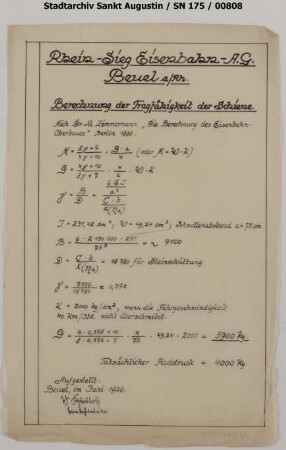 Stadtarchiv Sankt Augustin / SN 175 / 00808
Rhein-Sieg Eisenbahn-A.G.
Beuel a/Rh.
Berechnung der Tragfähigkeit der Schiene.
Nach Dr. Zimmermann „Die Berechnung des Eisenbahn-
Oberbaues" Berlin
M = (8γ + 7)/(4γ + 10) · (G · a)/4 (oder M = W · K)
G = (4γ + 10)/(8γ + 7) · 4/a · W · K
γ = B/D =
B = (6 · 2 150 000 · 231)/75³ = ~ 7100
D = = 18 780 für Steinschüttung
γ = 7100/18780 = 0,378
K = 2000 kg/cm², wenn die Fahrgeschwindigkeit
40 Km/Std. nicht überschreitet.
G = (4 · 0,378 + 10)/(8 · 0,378 + 7) · 4/75 · 49,24 · 2000 = 5900 Kg.
Tatsächlicher Raddruck = 4000 Kg.
Aufgestellt:
Beuel, im Juni